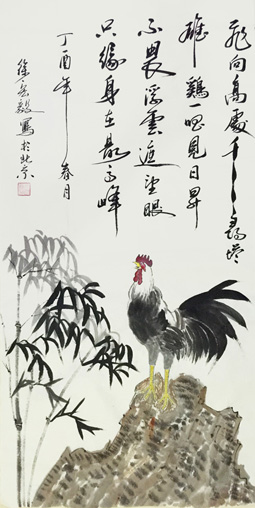 飛向高處千尋塔
雄鷄一唱見日昇
不畏浮雲遮望眼
只緣身在最高峰
丁酉年春月
徐 寫於北京